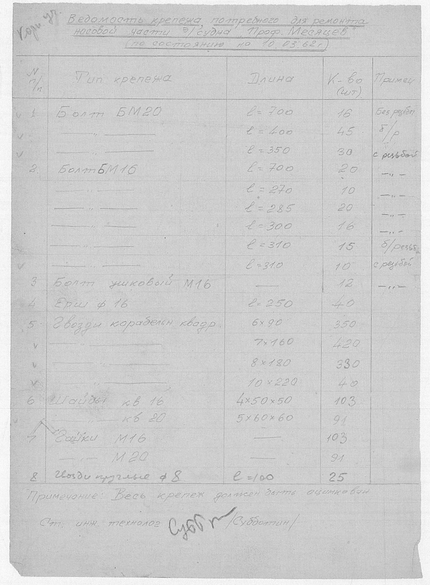 Ведомость крепежа, потребного для ремонта
носовой части э/судна "Проф. Месяцев"
(по состоянию на 10.03.62 г.)
№ п/п Тип крепежа Длина К-во (шт) Примеч
1 Болт БМ20 l=700 16 без резьбы
—— —— l=400 45 б/р
—— —— l=350 30 с резьбой
2 Болт БМ16 l=700 20 —„—
—— —— l=270 10 —„—
—— —— l=285 20 —„—
—— —— l=300 16 —„—
—— —— l=310 15 б/резьб.
—— —— l=310 10 с резьбой
3 Болт ушковый М16 —— 12 —„—
4 Ерш ф 16 l=250 40
5 Гвозди корабельн. квадр. 6×90 350
—— —— 7×160 420
—— —— 8×180 330
—— —— 10×220 40
6 Шайбы кв 16 4×50×50 103
—— кв 20 5×60×60 91
7 Гайки М16 —— 103
—— М20 —— 91
8 Гвозди круглые ф 8 l=100 25
Примечание: Весь крепеж должен быть оцинкован
Ст. инж. технолог /Субботин/